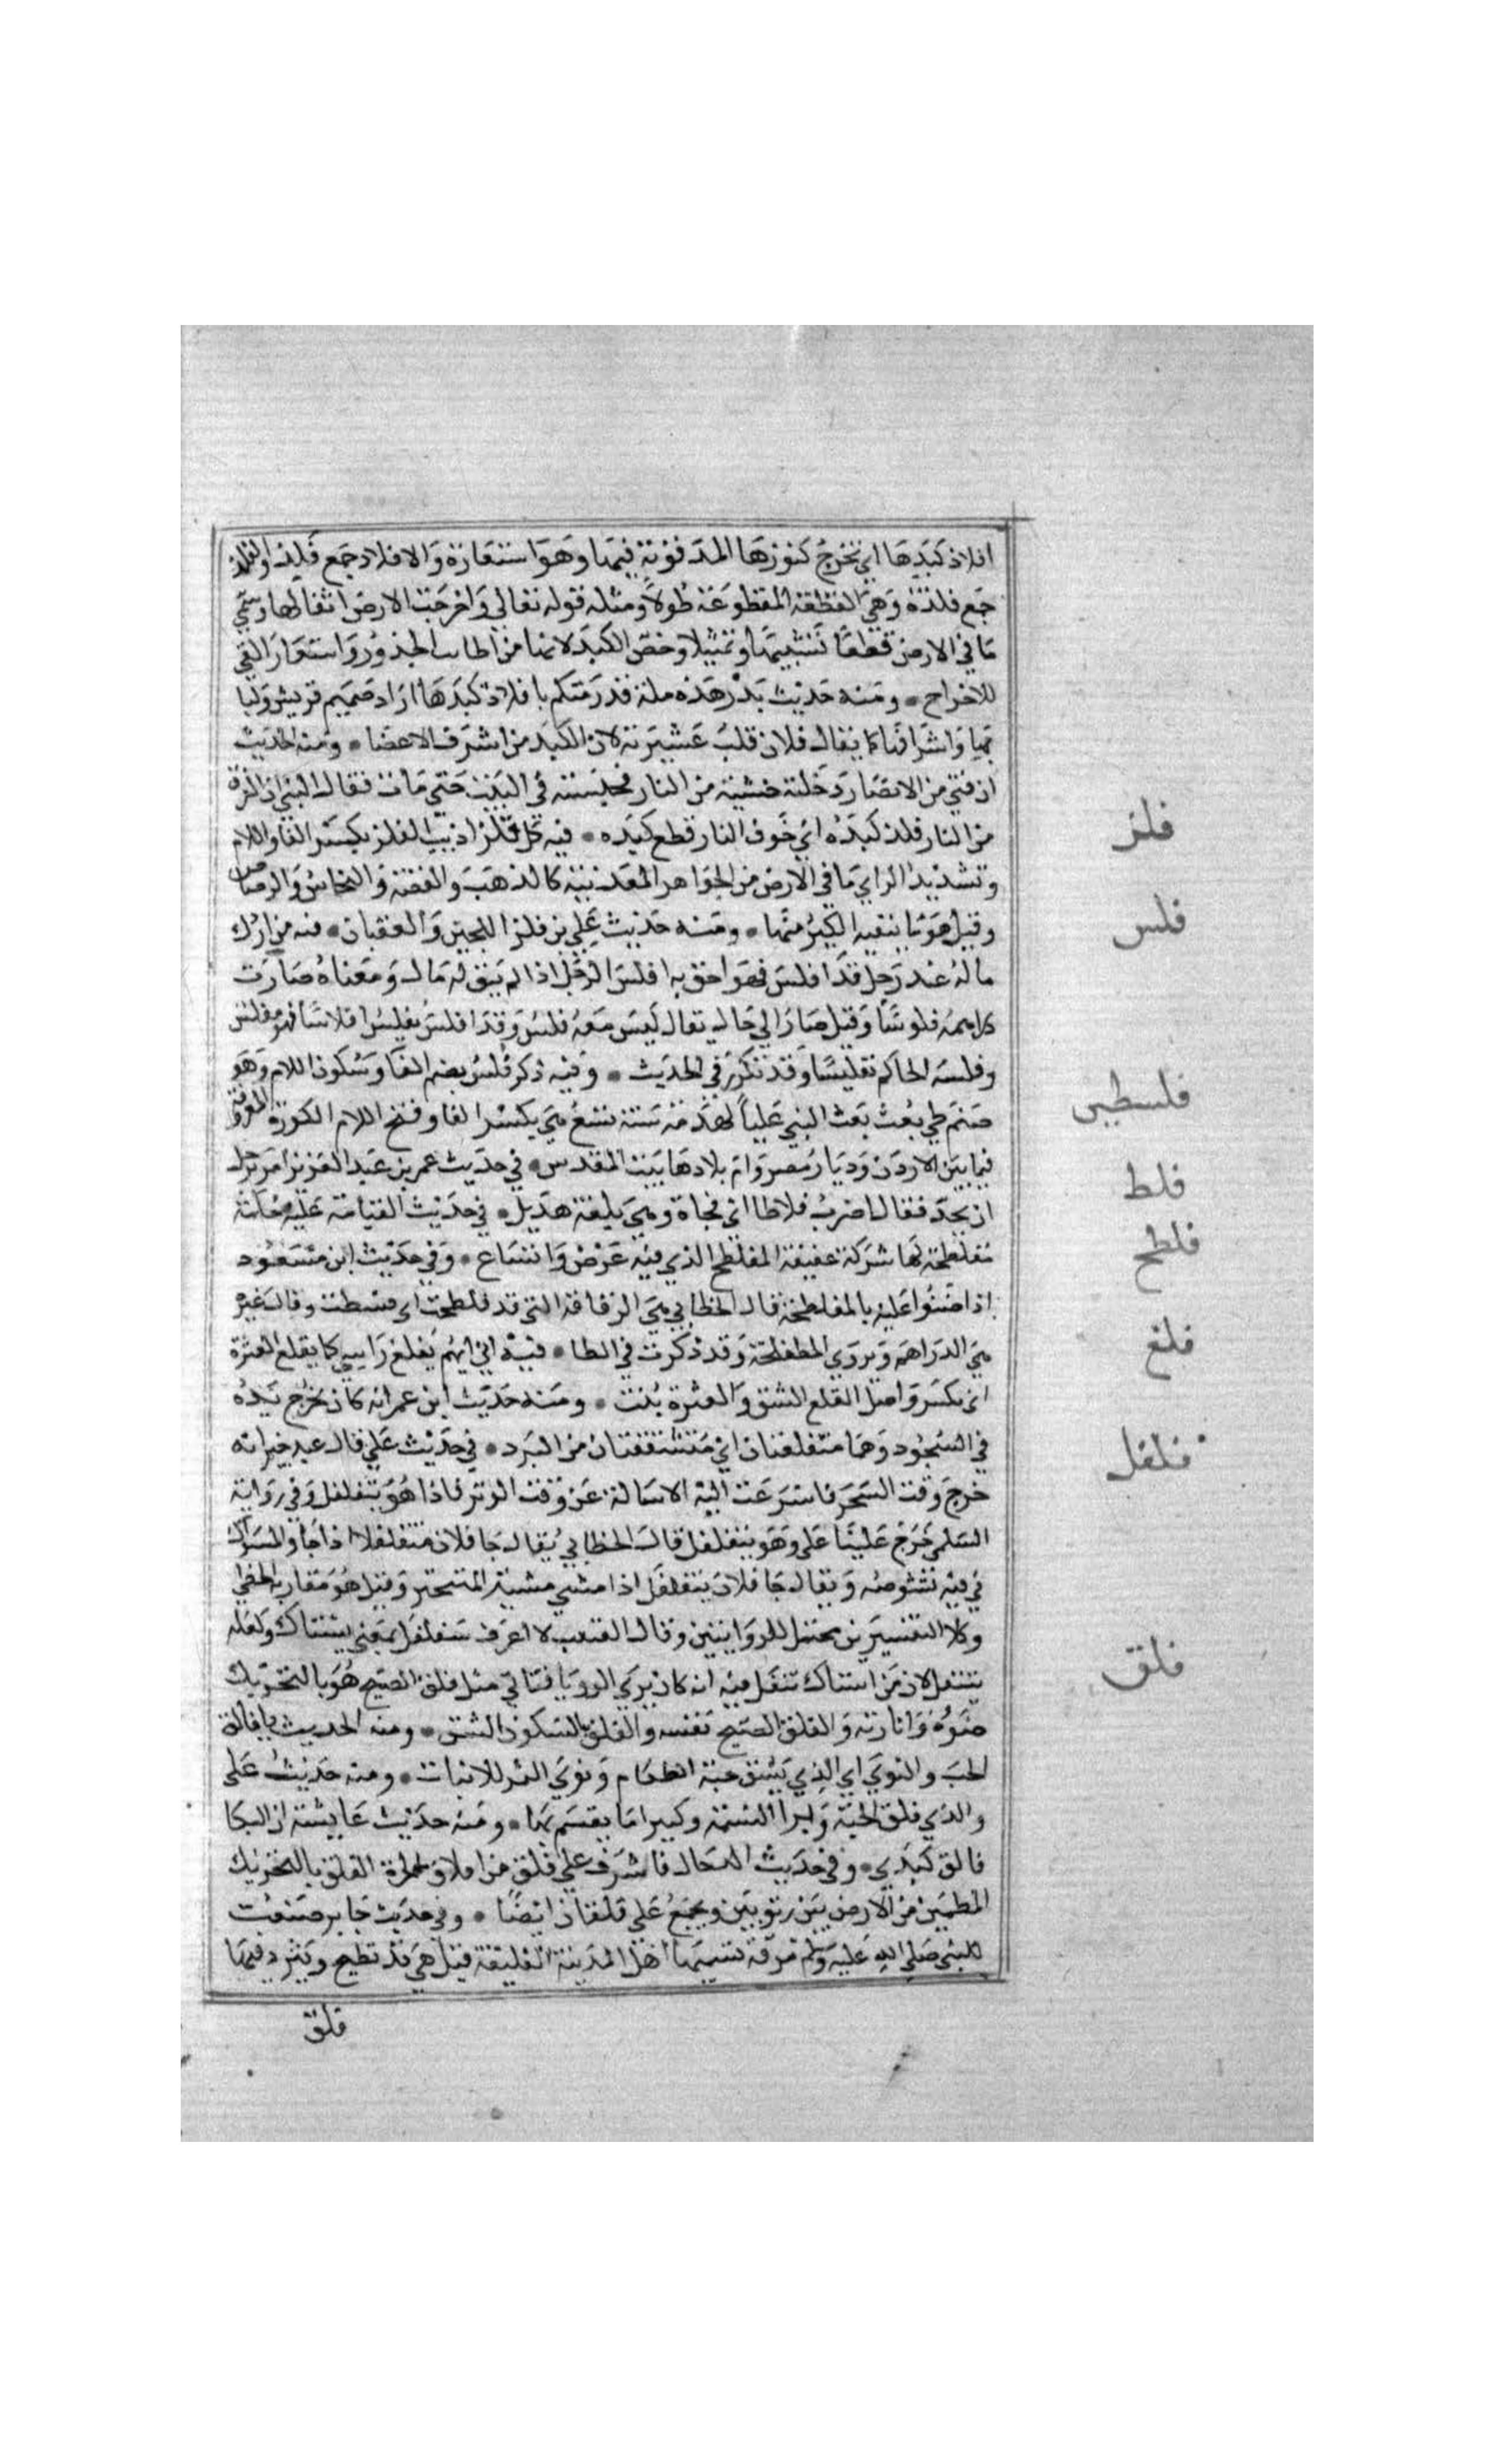 افلاذ كبدها اي تخرج كنوزها المدفونة فيها وهو استعارة والافلاذ جمع فلذ والفلذ
جمع فلذة وهي القطعة المقطوعة طولا ومثله قوله تعالي واخرجت الارض اثقالها وسمي
ما في الارض قطعا تشبيها وتمثيلا وخص الكبد لانها من اطايب الجذور واستعار القي
للاخراج • ومنه حديث بدر هذه مكة قد رمتكم بافلاذ كبدها اراد صميم قريش ولبا
بها واشرافها كما يقال فلان قلب عشيرته لان الكبد من اشرف الاعضا • ومنه الحديث
ان فتي من الانصار دخلته خشية من النار فحبسته في البيت حتي مات فقال النبي ان الفرق
من النار فلذ كبده اي خوف النار قطع كبده • فيه كل فلز اذيب الفلز بكسر الفا واللام
وتشديد الزاي ما في الارض من الجواهر المعدنية كالذهب والفضة والنحاس والرصاص
وقيل هو ما ينفيه الكير منها • ومنه حديث علي من فلز اللجين والعقيان • فيه من ادرك
ماله عند رجل قد افلس فهو احق به افلس الرجل اذا لم يبق له مال ومعناه صارت
دراهمه فلوسا وقيل صار الي حال يقال ليس معه فلس وقد افلس يفلس افلاسا فهو مفلس
وفلسه الحاكم تفليسا وقد تكرر في الحديث • وفيه ذكر فلس بضم الفا وسكون اللام وهو
صنم طي بعث النبي عليا لهدمه سنة تسع هي بكسر الفا وفتح اللام الكورة المعروفة
فيما بين الاردن وديار مصر وام بلادها بيت المقدس • في حديث عمر بن عبد العزيز امر برجل
ان يحد فقال اضرب فلاطا اي فجاة وهي بلغة هذيل • في حديث القيامة عليه حسكة
مفلطحة لها شوكة عقيفة المفلطح الذي فيه عرض واتساع • وفي حديث ابن مسعود
اذا ضنوا عليه بالمفلطحة قال الخطابي هي الرقاقة التي قد فلطحت اي بسطت وقال غيره
هي الدراهم ويروي المطفلحة وقد ذكرت في الطا • فيه اني ان يفلغ راسي كما يفلغ العترة
اي يكسر واصل الفلغ الشق والعترة نبت • ومنه حديث ابن عمر انه كان يخرج يده
في السجود وهما متفلغتان اي متشققتان من البرد • في حديث علي قال عبد خير انه
خرج وقت السحر فاسرعت اليه لاساله عن وقت الوتر فاذا هو يتفلفل وفي رواية
السلمي خرج علينا علي وهو يتفلفل قال الخطابي يقال جا فلان متفلفلا اذا جا والسواك
في فيه يشوصه ويقال جا فلان يتفلفل اذا مشي مشية المتبختر وقيل هو مقاربة الخطي
وكلا التفسيرين محتمل للروايتين وقال القتيبي لا اعرف يتفلفل بمعني يستاك ولعله
يتتفل لان من استاك تفل فيه انه كان يري الرويا فتاتي مثل فلق الصبح هو بالتحريك
ضوءه وانارته والفلق الصبح نفسه والفلق بالسكون الشق • ومنه الحديث يا فالق
الحب والنوي اي الذي يشق حبة الطعام ونوي التمر للانبات • ومنه حديث علي
والذي فلق الحبة وبرا النسمة وكثيرا ما يقسم بها • ومنه حديث عايشة ان البكا
فالق كبدي • وفي حديث الدجال فاشرف علي فلق من افلاق الحرة الفلق بالتحريك
المطمين من الارض بين ربوتين ويجمع علي فلقان ايضا • وفي حديث جابر صنعت
للنبي صلي الله عليه وسلم مرقة يسميها اهل المدينة الفليقة قيل هي قدر تطبخ ويثرد فيها
فلق
فلز
فلس
فلسطين
فلط
فلطح
فلغ
فلفل
فلق